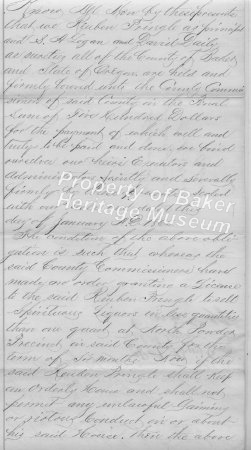 Know All Men by these presents
that we Reuben Pringle as principal
and S. H. Logan and David Daily
as sureties all of the County of Baker
and State of Oregon are held and
firmly bound unto the County Commis
of said County in the Penal
Sum of Five Hundred Dollars
for the payment of which well and
truly to be paid and done, we bind
ourselves our heirs Executors and
Administrators Jointly and Severally
firmly by these Sealed
with our
day of January A.D.
The condition of the above obli-
gation is such that whereas the
said County Commissioners have
made an order granting a License
to the said Reuben Pringle to sell
Spirituous Liquors in less quantities
than one quart, at North Powder
Precinct in said County for the
term of Six months Now if the
said Reuben Pringle shall Keep
an Orderly House and shall not
permit any unlawful Gaming
or riotous Conduct in or about
his said House. then the above
Property of Baker
Heritage Museum